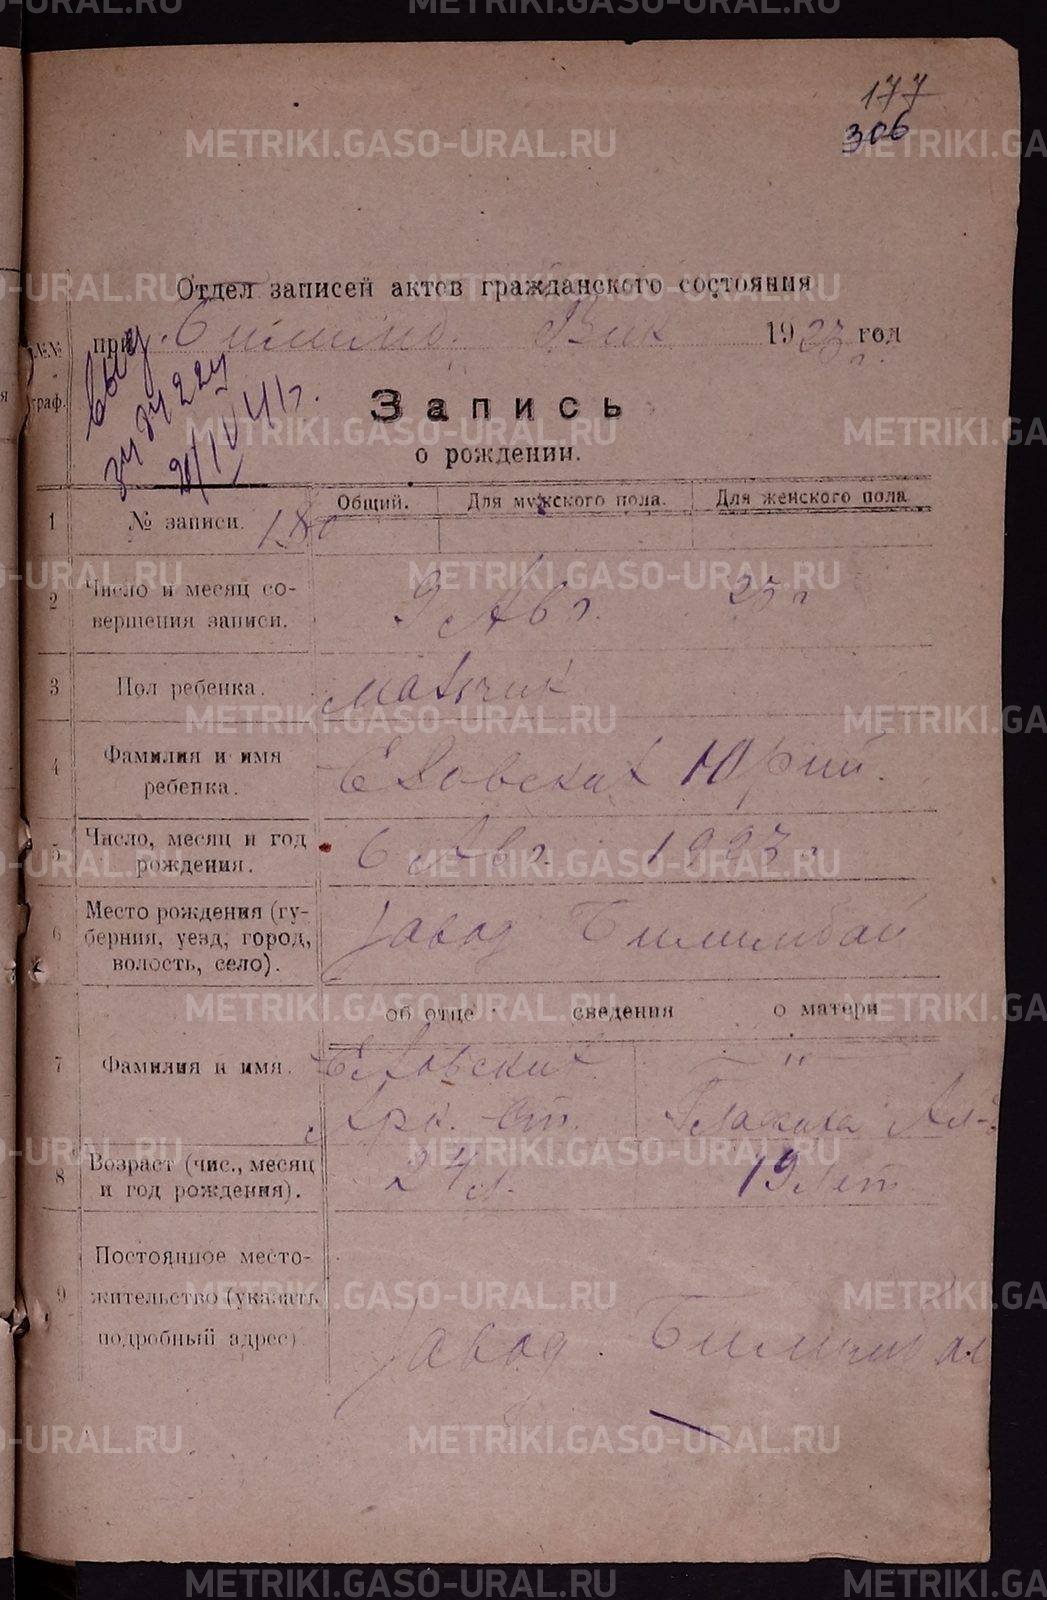 177
306
Отдел записей актов гражданского состояния
№№ при Билимб. Вик 1923 год
граф. выд.
21/IV 41г.
Запись
о рождении.
Общий. Для мужского пола. Для женского пола
1 № записи. 180
2 Число и месяц со-
вершения записи. 9 Авг. 23 г
3 Пол ребенка. мальчик
4 Фамилия и имя
ребенка. Еховских Юрий.
5 Число, месяц и год
рождения. 6 Авг. 1923 г
6 Место рождения (гу-
берния, уезд, город,
волость, село). Завод Билимбай
об отце сведения о матери
7 Фамилия и имя. Еховских — "
Арк. Ст.
8 Возраст (чис., месяц
и год рождения). 24 л. 19 лет
9 Постоянное место-
жительство (указать
подробный адрес) Завод. Билимбай
METRIKI.GASO-URAL.RU